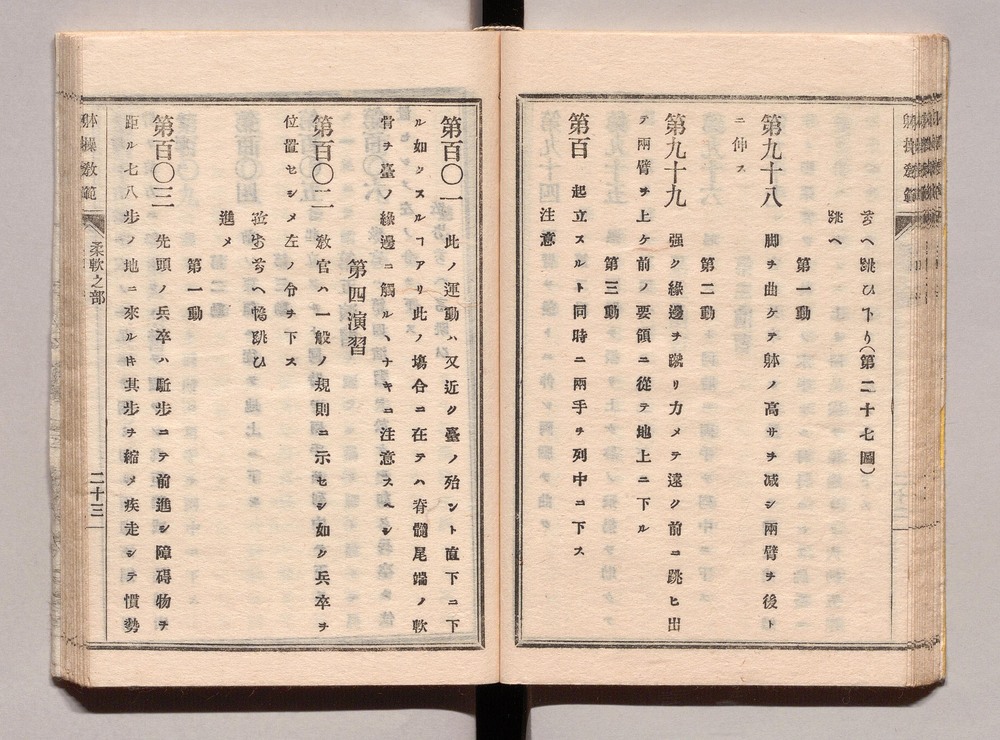 旁へ跳ひ下り(第二十七圖)
跳へ
第一動
第九十八 脚ヲ曲ケテ躰ノ高サヲ减シ兩臂ヲ後ト
ニ伸ス
第二動
第九十九 强ク緣邊ヲ蹴リ力メテ遠ク前ニ跳ヒ出
テ兩臂ヲ上ケ前ノ要領ニ從テ地上ニ下ル
第三動
第百 起立スルト同時ニ兩手ヲ列中ニ下ス
注意
第百〇一 此ノ運動ハ又近ク臺ノ殆ント直下ニ下
ル如クスルヿアリ此ノ塲合ニ在テハ脊髓尾端ノ軟
骨ヲ臺ノ緣邊ニ觸ルヘナキニ注意スヘシ
第四演習
第百〇二 敎官ハ一般ノ規則ニ示セシ如ク兵卒ヲ
位置セシメ左ノ令ヲ下ス
進メ
第一動
第百〇三 先頭ノ兵卒ハ駈步ニテ前進シ障碍物ヲ
距ル七八步ノ地ニ來ルキ其步ヲ縮メ疾走シテ慣勢
躰操敎範
柔軟之部
二十三